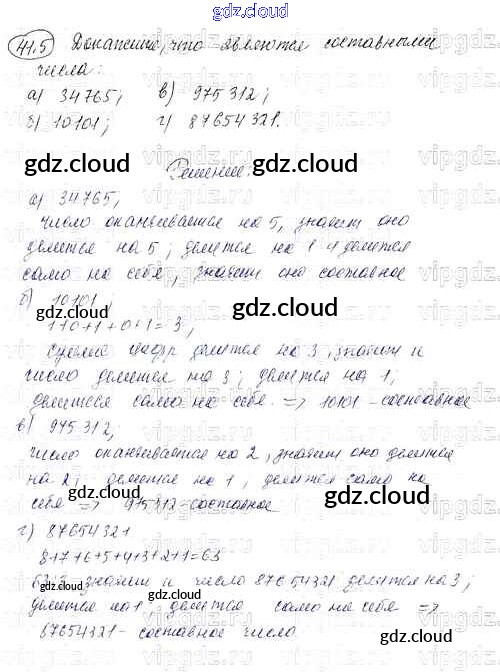 gdz.cloud
41.5 Докажите, что являются составными
числа:
а) 34765; в) 975312;
б) 10101; г) 87654321.
gdz.cloud gdz.cloud
Решение:
а) 34765;
число оканчивается на 5, значит оно
делится на 5; делится на 1 и делится
само на себя, значит оно составное
б) 10101;
gdz.cloud gdz.cloud
1+0+1+0+1=3;
сумма цифр делится на 3, значит и
число делится на 3; делится на 1;
делится само на себя. => 10101 - составное
в) 975312;
число оканчивается на 2, значит оно делится
на 2; делится на 1, делится само на
себя => 975312 - составное
gdz.cloud gdz.cloud
г) 87654321
8+7+6+5+4+3+2+1=63
63:3, значит и число 87654321 делится на 3;
делится на 1; делится само на себя =>
87654321 - составное число.
gdz.cloud gdz.cloud